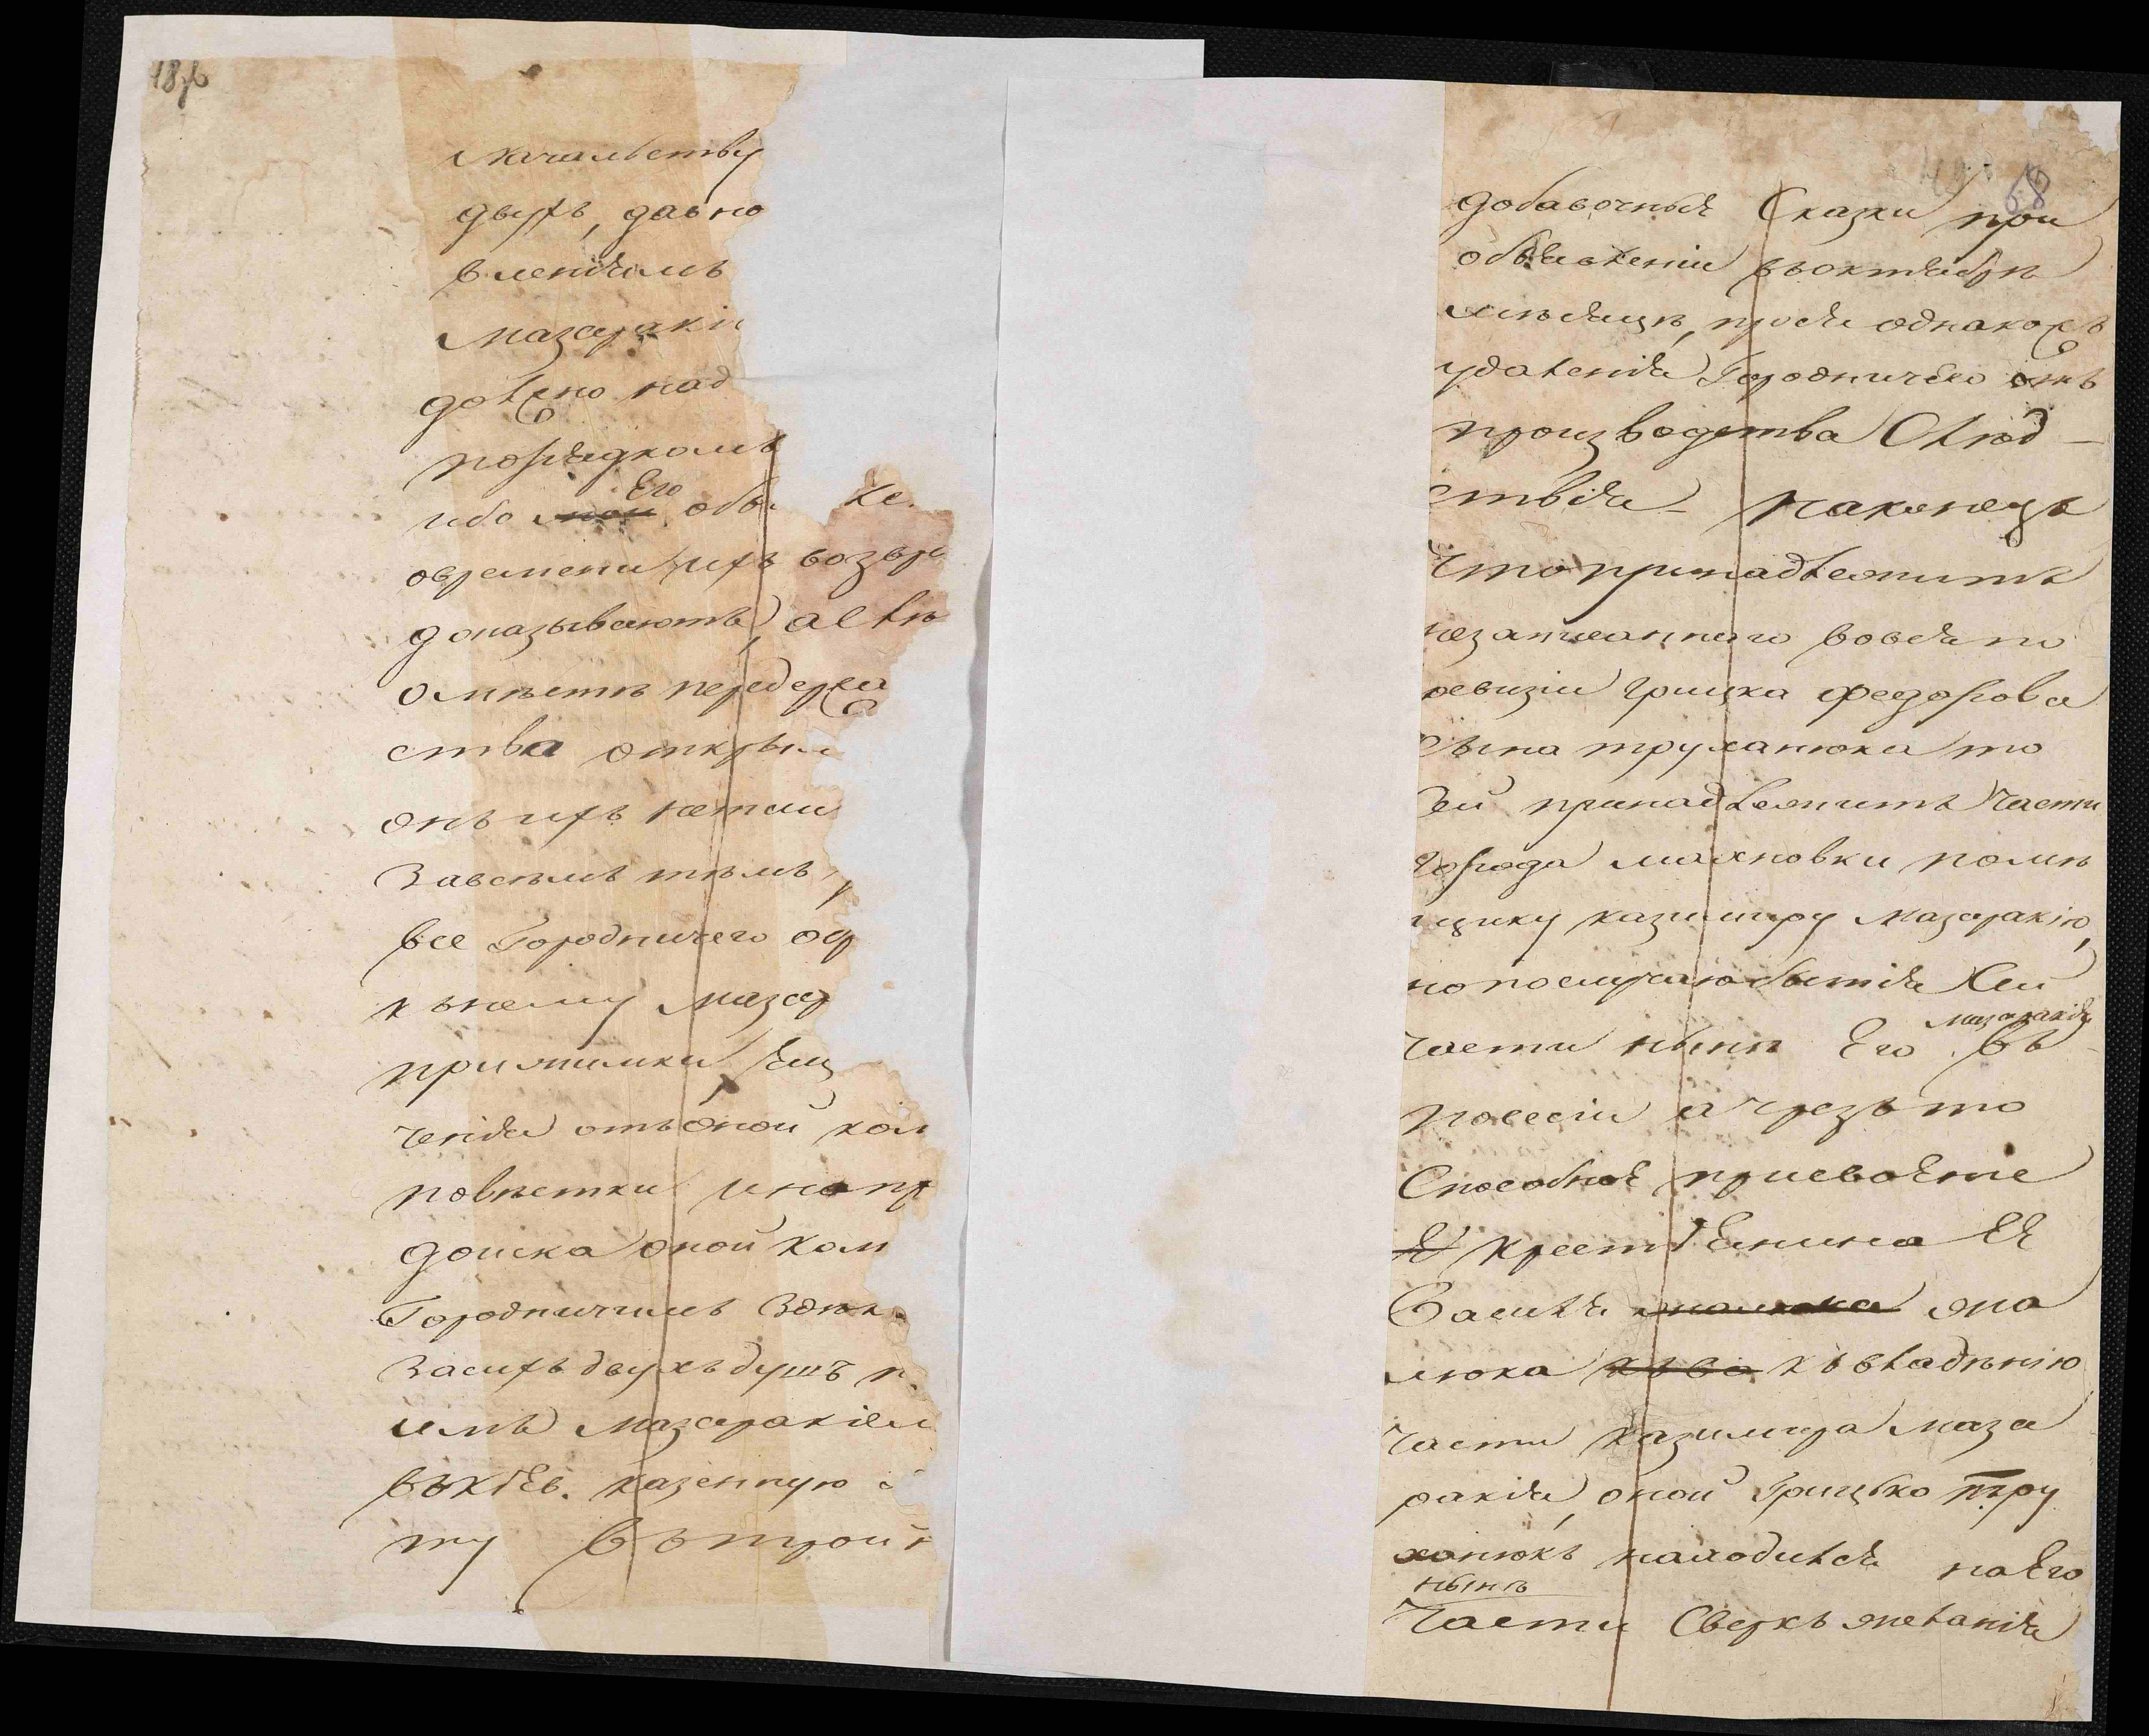 начальству
двухъ, давно
влениемъ
Мазараки
должно над
порядкомъ
Его
ибо мои объ
овремени ихъ возвра
доказываютъ, а слѣ
омѣстѣ передержа
ства открыт
онъ ихъ неты
Завсемъ тѣмъ
все Городничего об
кънему Мазар
прижимки
ченія отъ оной ком
повѣстки инапр
доиска оной ком
Городничимъ Здѣл
Засихъ двухъ душъ п
имъ Мазаракiем
въкіев. казенную
ту въ трой
68
добавочныя Сказки при
объявленіи въоктябрѣ
мѣсяцѣ, прося однакожъ
удаленія Городничего отъ
производства Слѣд-
ствія - наконецъ
Что принадлежитъ
незаписаннаго вовся по
ревизіи Грицка Федорова
Сына труханюка то
Сей принадлежитъ части
Города махновки помѣ
щику казимиру Мазаракію,
но послучаю бытія Сей
Мазаракія
части нынѣ Его въ
посесіи а чрезъ то
Способное присвоение
Крестьянина Ея
Василя япо
люка къ владѣнію
части казимира Маза
ракія, оной Грицько тру
ханюкъ находился на Его
нынѣ
Части Сверхъ желанія